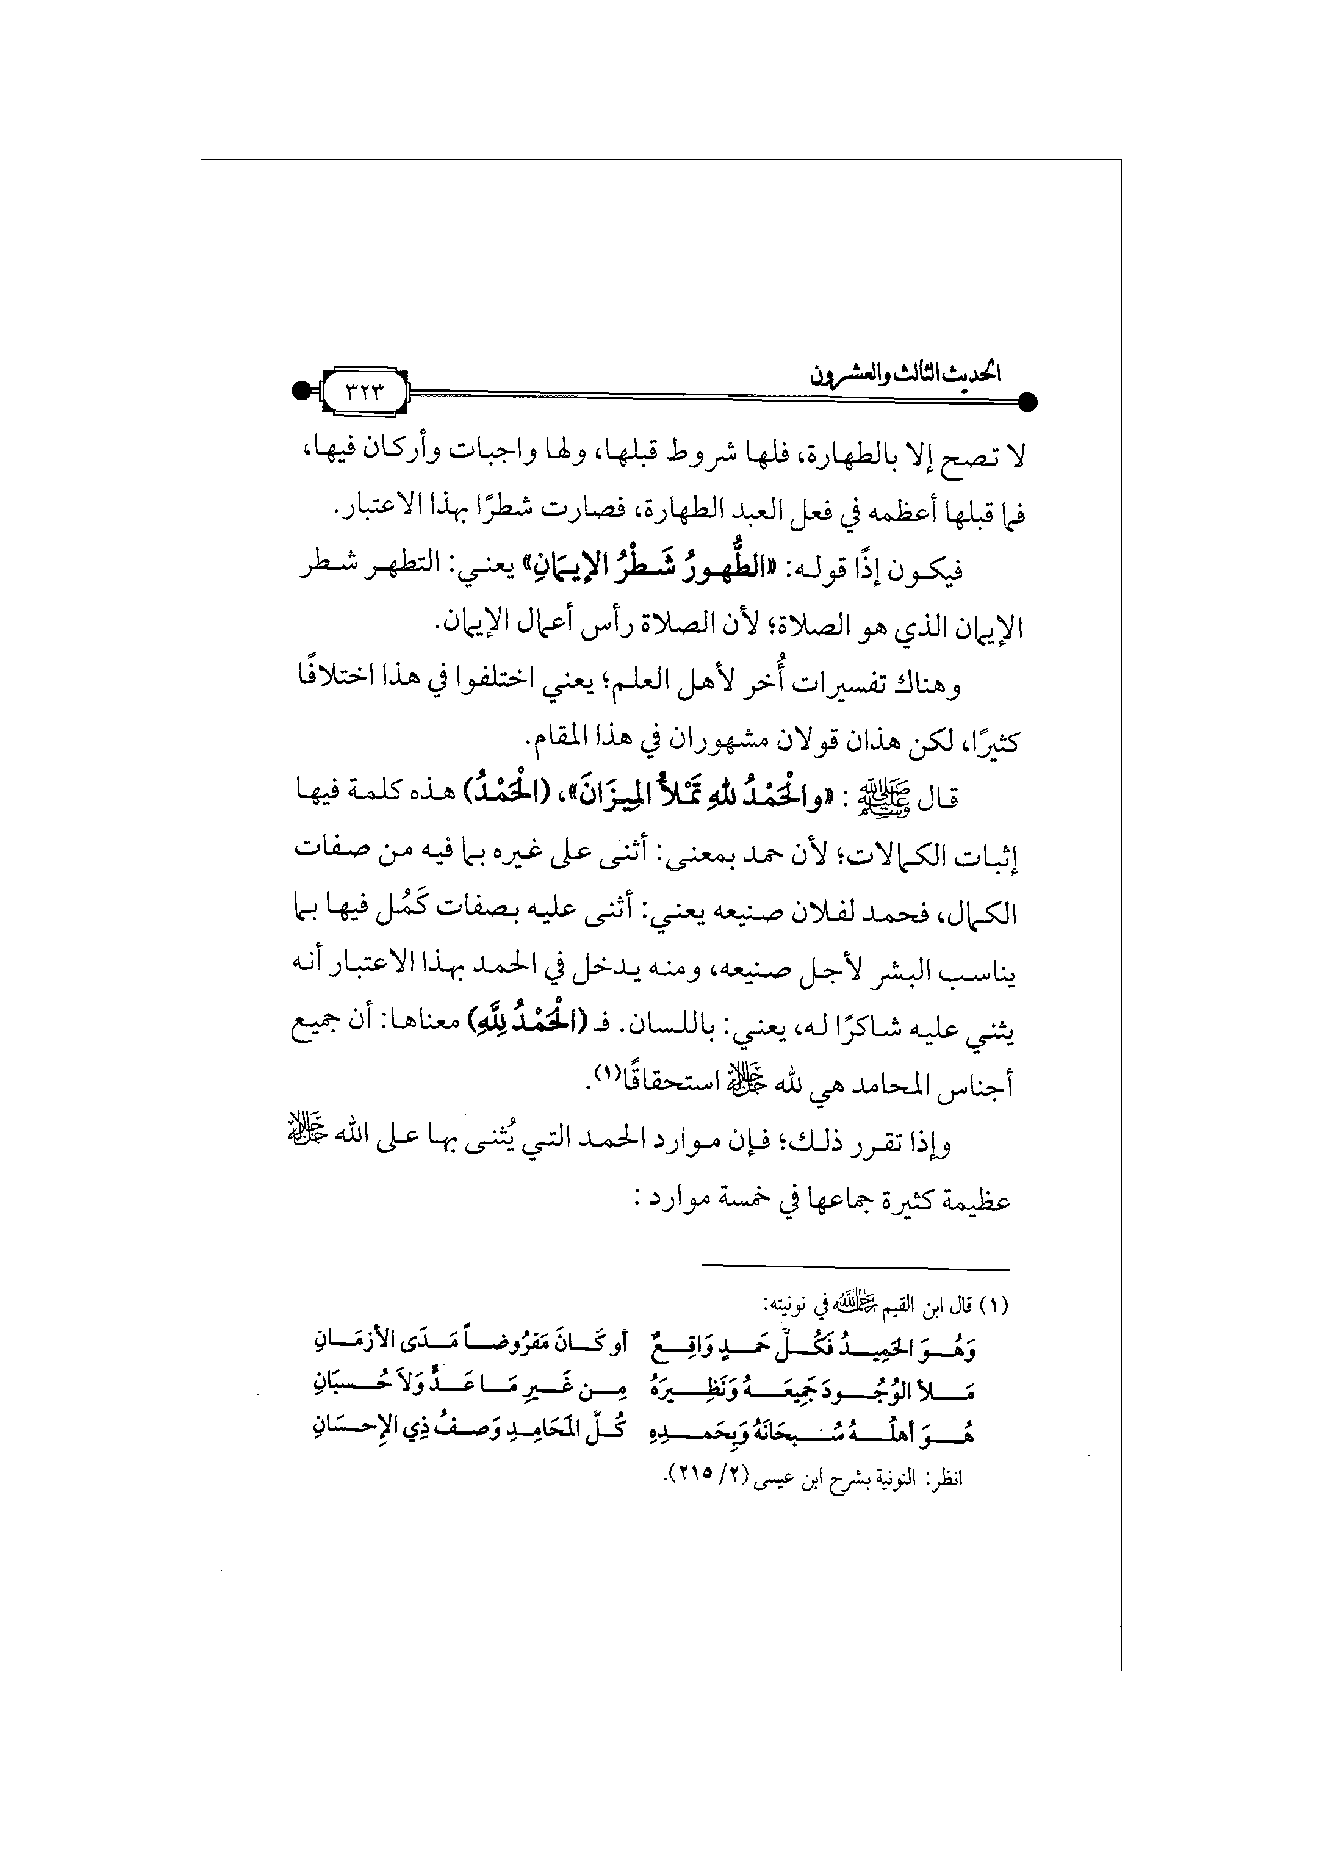 الحديث الثالث والعشرون
٣٢٣
لا تصح إلا بالطهارة، فلها شروط قبلها، ولها واجبات وأركان فيها،
فما قبلها أعظمه في فعل العبد الطهارة، فصارت شطرًا بهذا الاعتبار.
فيكون إذًا قوله: «الطُّهورُ شَطْرُ الإيمَانِ» يعني: التطهر شطر
الإيمان الذي هو الصلاة؛ لأن الصلاة رأس أعمال الإيمان.
وهناك تفسيرات أُخر لأهل العلم؛ يعني اختلفوا في هذا اختلافًا
كثيرًا، لكن هذان قولان مشهوران في هذا المقام.
قال ﷺ: «والحَمْدُ للهِ تَمْلأُ المِيزَانَ»، (الحَمْدُ) هذه كلمة فيها
إثبات الكمالات؛ لأن حمد بمعنى: أثنى على غيره بما فيه من صفات
الكمال، فحمد لفلان صنيعه يعني: أثنى عليه بصفات كَمُل فيها بما
يناسب البشر لأجل صنيعه، ومنه يدخل في الحمد بهذا الاعتبار أنه
يثني عليه شاكرًا له، يعني: باللسان. فـ (الحَمْدُ لِلَّهِ) معناها: أن جميع
أجناس المحامد هي لله ﷻ استحقاقًا(١).
وإذا تقرر ذلك؛ فإن موارد الحمد التي يُثنى بها على الله ﷻ
عظيمة كثيرة جماعها في خمسة موارد :
(١) قال ابن القيم رحمه الله في نونيته:
وَهُوَ الحَمِيدُ فَكُلُّ حَمدٍ وَاقِعٌ أو كَانَ مَفرُوضاً مَدَى الأزمَانِ
مَلأ الوُجُودَ جَمِيعَهُ وَنَظِيرَهُ مِن غَيرِ مَا عَدٍّ وَلاَ حُسبَانِ
هُوَ أهلُهُ سُبحَانَهُ وَبِحَمدِهِ كُلُّ المَحَامِدِ وَصفُ ذِي الإحسَانِ
انظر: النونية بشرح ابن عيسى (٢/ ٢١٥).